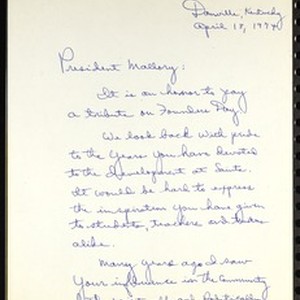 Danville, Kentucky
April 18, 1974
President Mallory:
It is an honor to pay
a tribute on Founders Day.
We look back with pride
to the years you have devoted
to the development at State.
It would be hard to express
the inspiration you have given
to students, teachers and
alike.
Many years ago I saw
your influence in the community